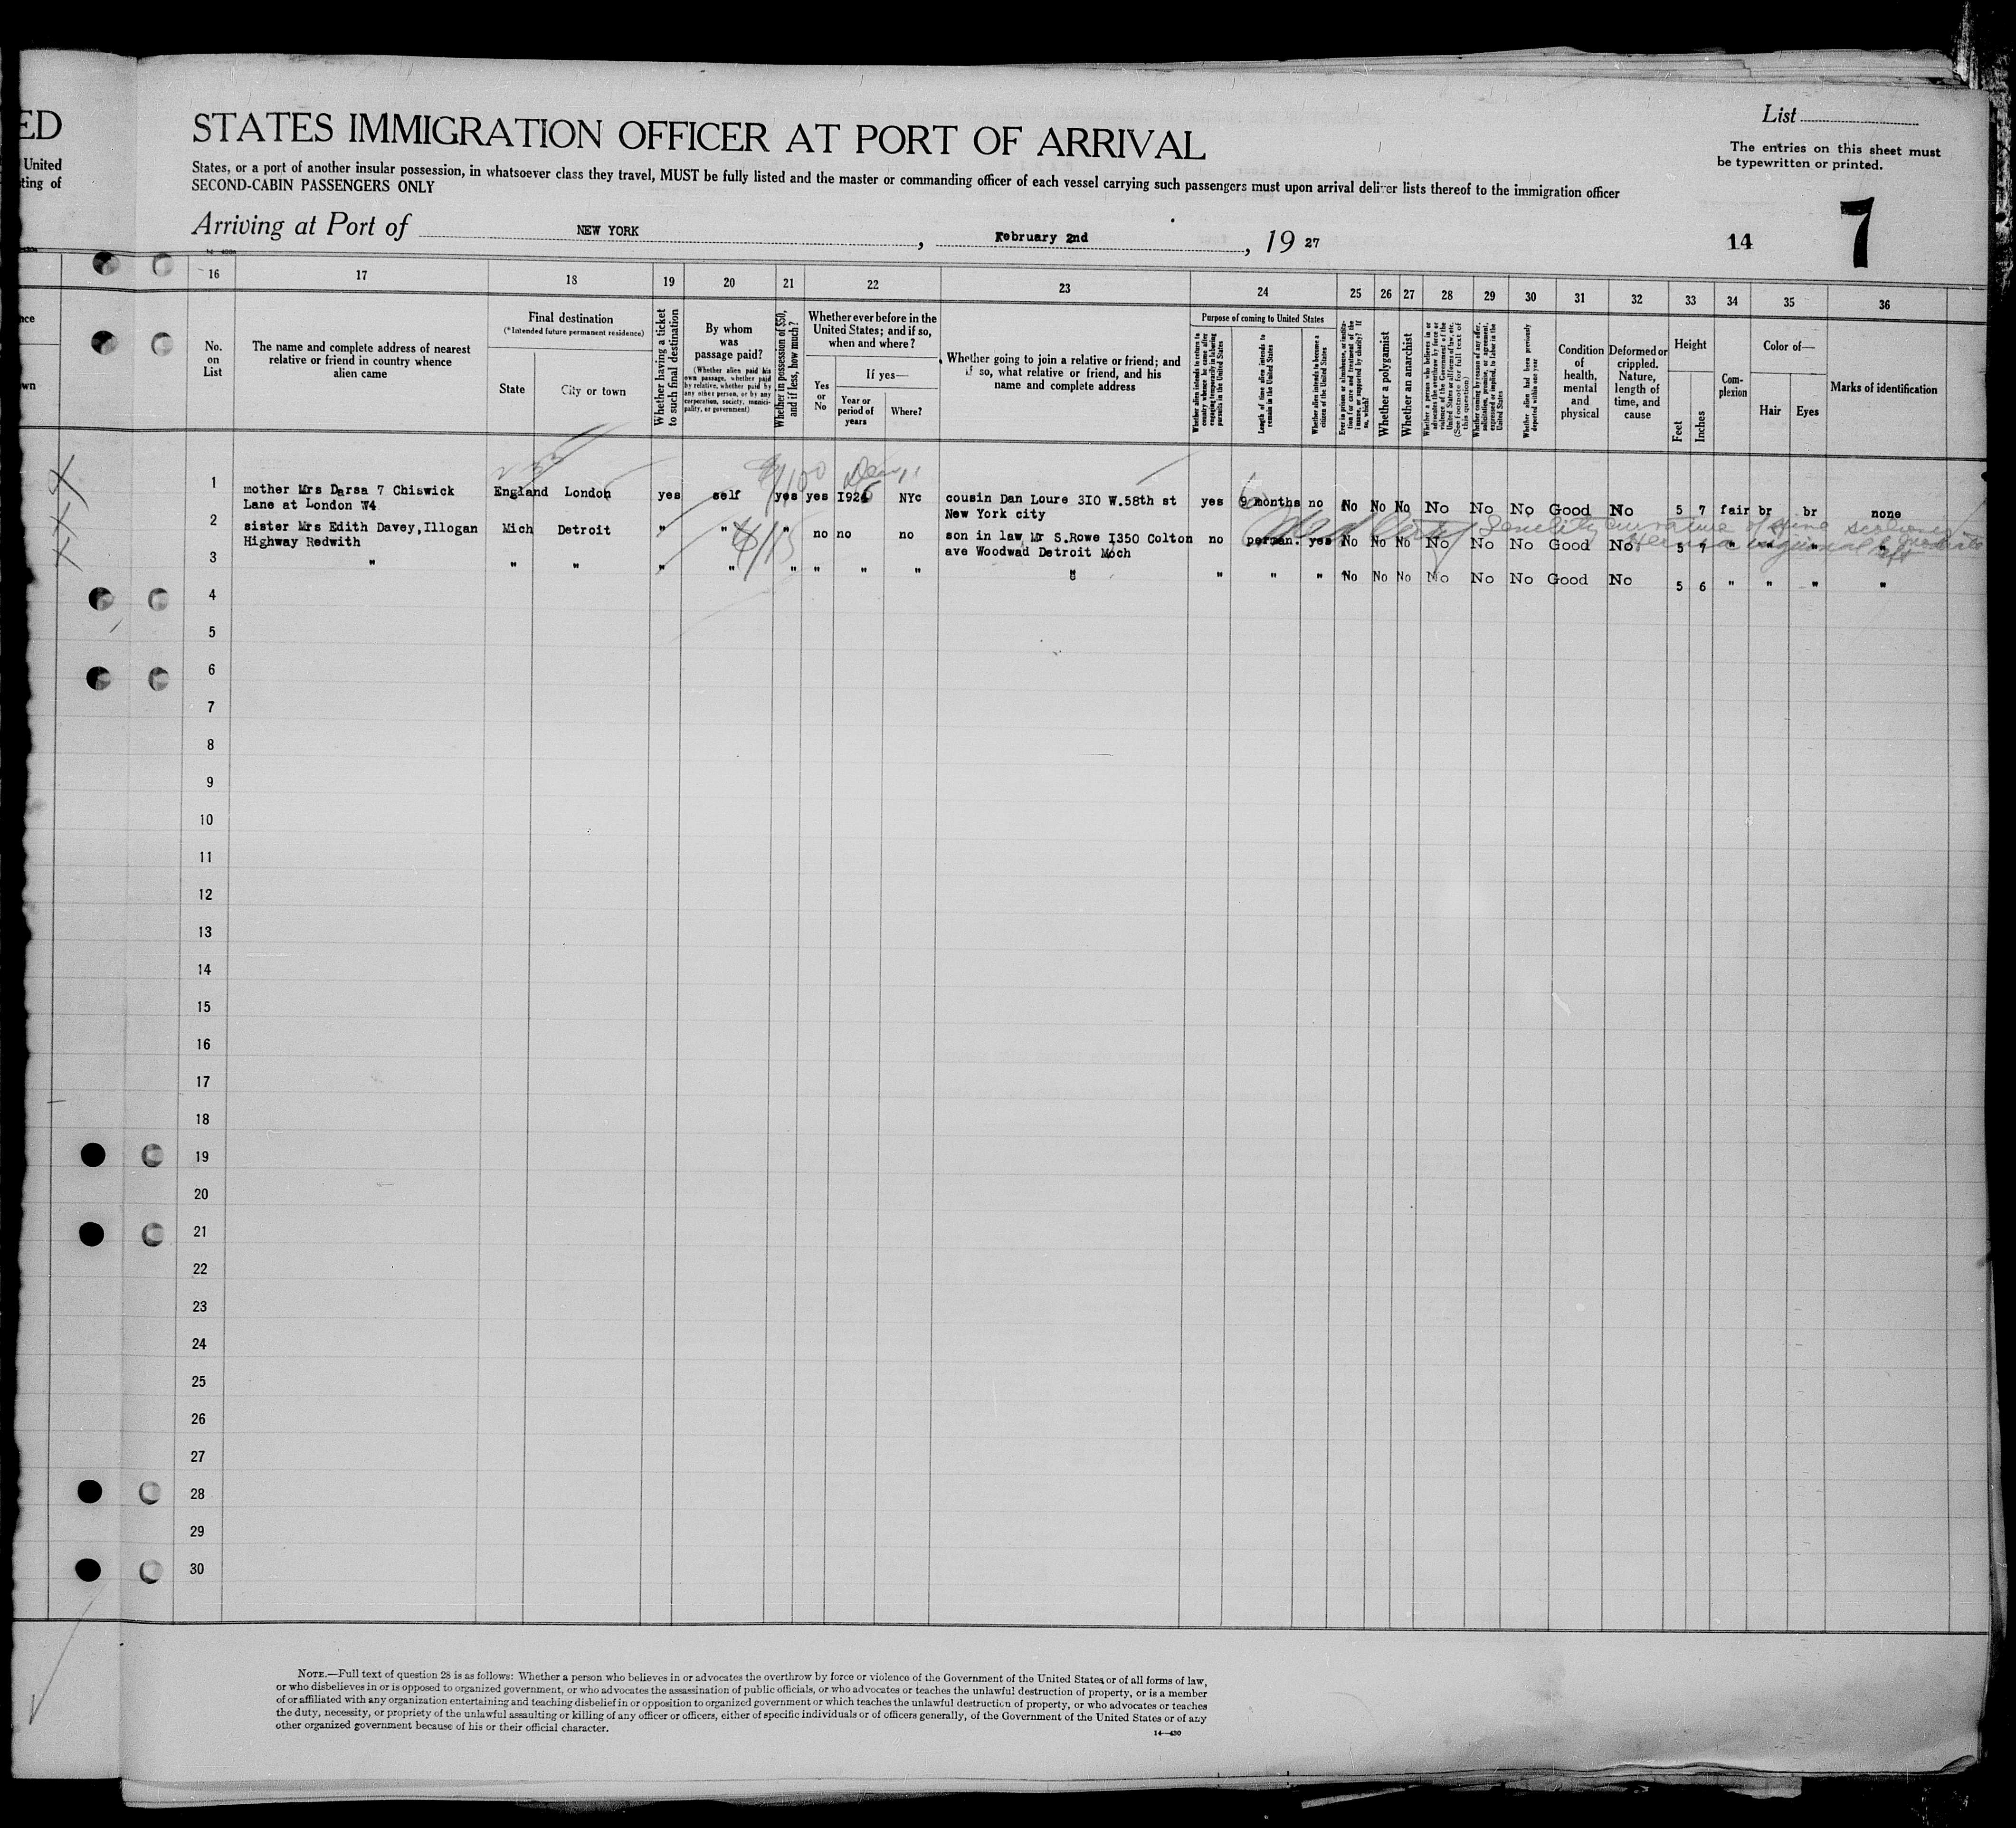 ED
United
ting of
STATES IMMIGRATION OFFICER AT PORT OF ARRIVAL
States, or a port of another insular possession, in whatsoever class they travel, MUST be fully listed and the master or commanding officer of each vessel carrying such passengers must upon arrival deliver lists thereof to the immigration officer
SECOND-CABIN PASSENGERS ONLY
List
The entries on this sheet must
be typewritten or printed.
Arriving at Port of NEW YORK, February 2nd, 19 27
14 7
16 17 18 19 20 21 22 23 24 25 26 27 28 29 30 31 32 33 34 35 36
No. on List
The name and complete address of nearest relative or friend in country whence alien came
Final destination
(*Intended future permanent residence)
State
City or town
Whether having a ticket to such final destination
By whom was passage paid?
(Whether alien paid his own passage, whether paid by relative, whether paid by any other person, or by any corporation, society, municipality, or government)
Whether in possession of $50, and if less, how much?
Whether ever before in the United States; and if so, when and where?
Yes or No
If yes—
Year or period of years
Where?
Whether going to join a relative or friend; and if so, what relative or friend, and his name and complete address
Purpose of coming to United States
Whether alien intends to return to country whence he came after engaging temporarily in laboring pursuits in the United States
Length of time alien intends to remain in the United States
Whether alien intends to become a citizen of the United States
Ever in prison or almshouse, or institution for care and treatment of the insane, or supported by charity? If so, which?
Whether a polygamist
Whether an anarchist
Whether a person who believes in or advocates the overthrow by force or violence of the Government of the United States or all forms of law, etc. (See footnote for full text of this question)
Whether coming by reason of any offer, solicitation, promise, or agreement, expressed or implied, to labor in the United States
Whether alien had been previously deported within one year
Condition of health, mental and physical
Deformed or crippled. Nature, length of time, and cause
Height
Feet
Inches
Com-plexion
Color of—
Hair
Eyes
Marks of identification
1 mother Mrs Darsa 7 Chiswick England London yes self yes yes 1926 NYc cousin Dan Loure 3I0 W.58th st yes 9 months no No No No No No No Good No 5 7 fair br br none
Lane at London W4 New York city
2 sister Mrs Edith Davey,Illogan Mich Detroit " " " no no no son in law Mr S.Rowe I350 Colton no perman. yes No No No No No No Good No 5 7 " " " "
Highway Redwith ave Woodwad Detroit Moch
3 " " " " " " " " " " " " " No No No No No No Good No 5 6 " " " "
4
5
6
7
8
9
10
11
12
13
14
15
16
17
18
19
20
21
22
23
24
25
26
27
28
29
30
NOTE.—Full text of question 28 is as follows: Whether a person who believes in or advocates the overthrow by force or violence of the Government of the United States or of all forms of law,
or who disbelieves in or is opposed to organized government, or who advocates the assassination of public officials, or who advocates or teaches the unlawful destruction of property, or is a member
of or affiliated with any organization entertaining and teaching disbelief in or opposition to organized government or which teaches the unlawful destruction of property, or who advocates or teaches
the duty, necessity, or propriety of the unlawful assaulting or killing of any officer or officers, either of specific individuals or of officers generally, of the Government of the United States or of any
other organized government because of his or their official character.
14—430